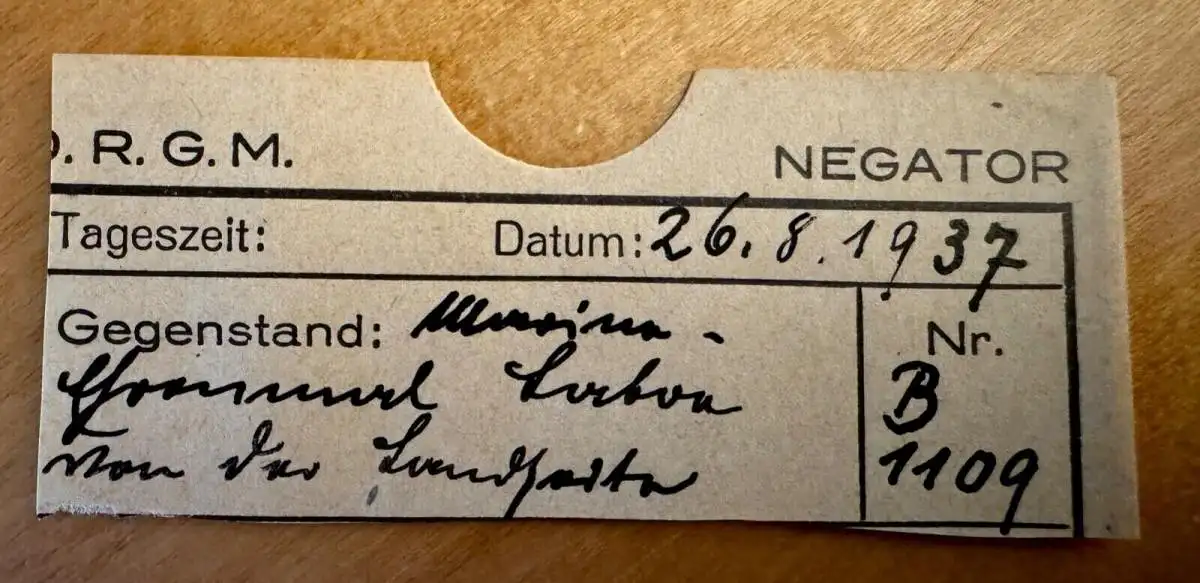 D. R. G. M. NEGATOR
Tageszeit: Datum: 26. 8. 1937
Gegenstand: Marine- Nr.
Ehrenmal Laboe B
von der Landseite 1109